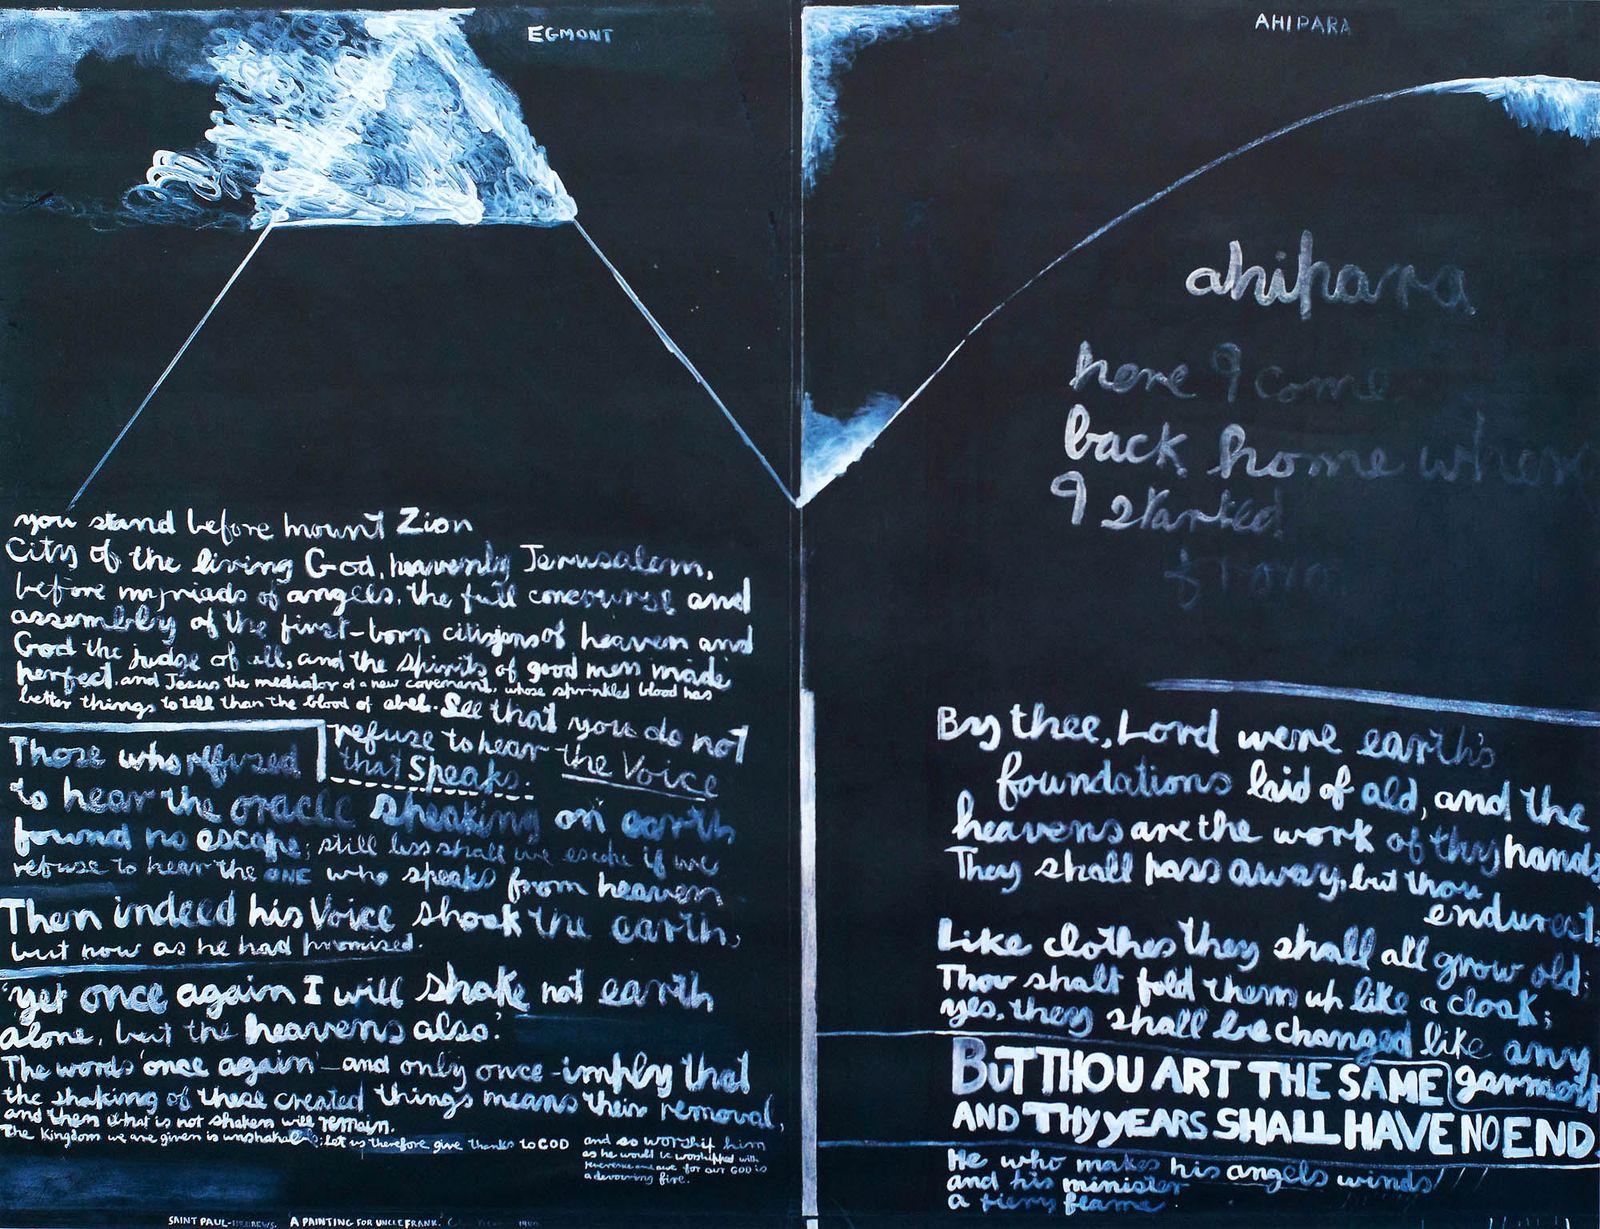 EGMONT
you stand before mount Zion
City of the living God, heavenly Jerusalem,
before myriads of angels, the full concourse and
assembly of the first-born citizens of heaven and
God the judge of all, and the spirits of good men made
perfect, and Jesus the mediator of a new covenant, whose sprinkled blood has
better things to tell than the blood of abel. See that you do not
refuse to hear the Voice
that Speaks.
Those who refused
to hear the oracle speaking on earth
found no escape; still less shall we escape if we
refuse to hear the ONE who speaks from heaven
Then indeed his Voice shook the earth,
but now as he had promised.
'yet once again I will shake not earth
alone, but the heavens also.'
The words 'once again' - and only once - imply that
the shaking of these created things means their removal,
and then what is not shaken will remain.
The Kingdom we are given is unshakable; let us therefore give thanks to GOD
and so worship him
as he would be worshipped with
reverence and awe for our GOD is
a devouring fire.
SAINT PAUL-HEBREWS. 'A PAINTING FOR UNCLE FRANK.'
AHIPARA
ahipara
here I come
back home where
I started
from
By thee, Lord were earth's
foundations laid of old, and the
heavens are the work of thy hands
They shall pass away, but thou
endurest;
Like clothes they shall all grow old;
Thou shalt fold them up like a cloak;
yes, they shall be changed like any
garment
BUT THOU ART THE SAME
AND THY YEARS SHALL HAVE NO END.
He who makes his angels winds
and his minister
a fiery flame